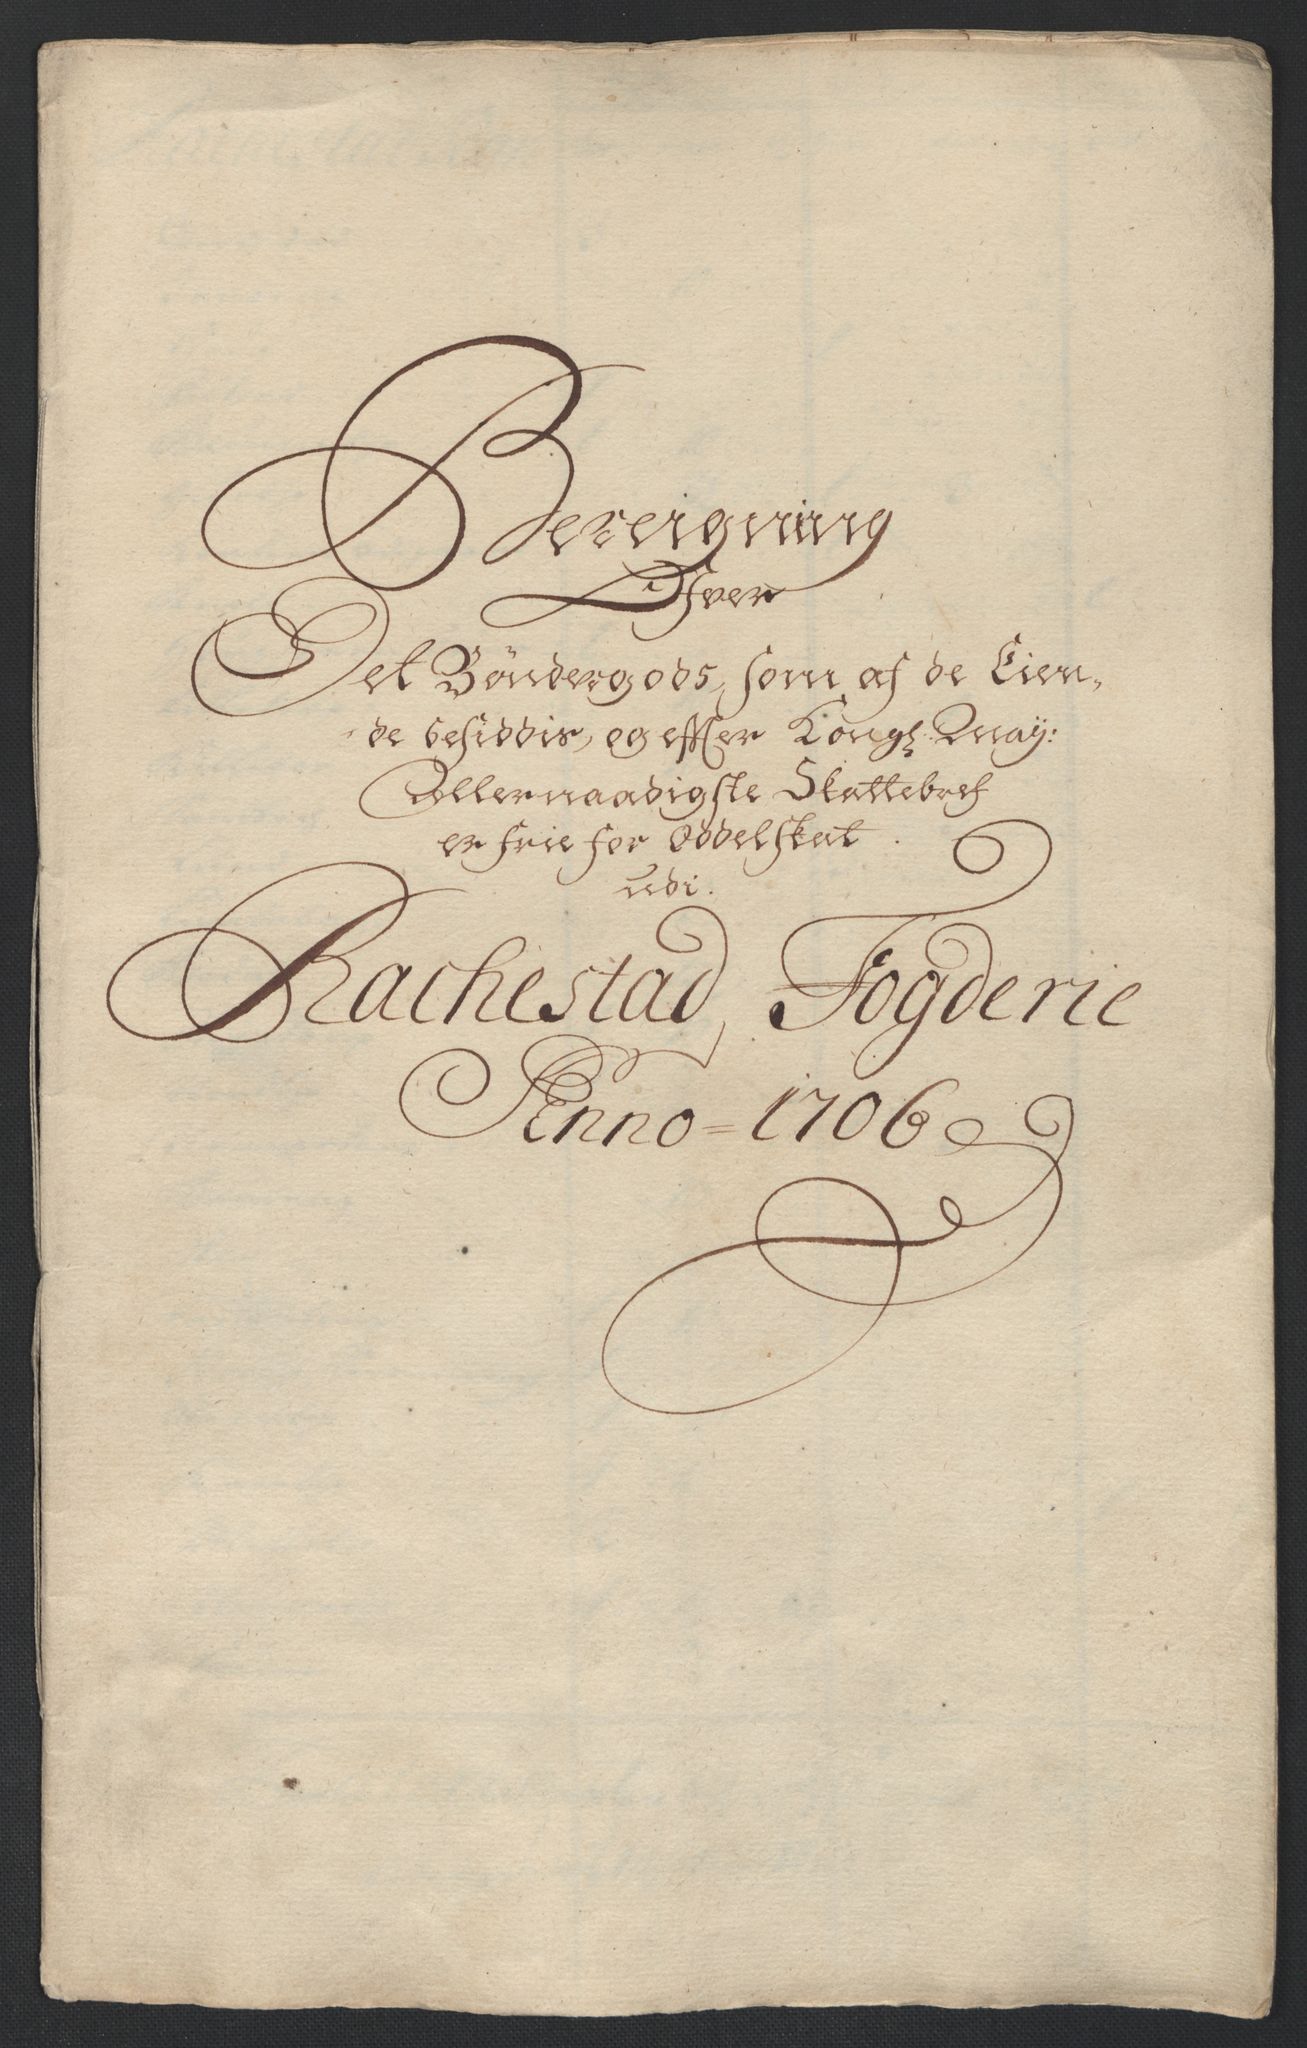 Bereigning
Ofver
Det Böndergods, som af de Eien,
de besiddis, og effter Kongl: May:
Allernaadigste Skattebref
er frie for Oddelskat.
Udi.
Rachestad, Fogderie
Anno = 1706